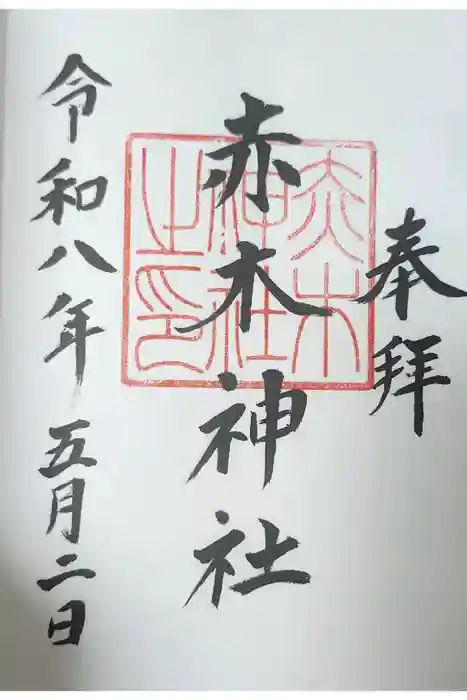 奉拝
赤木神社
赤木神社之印
令和八年五月二日